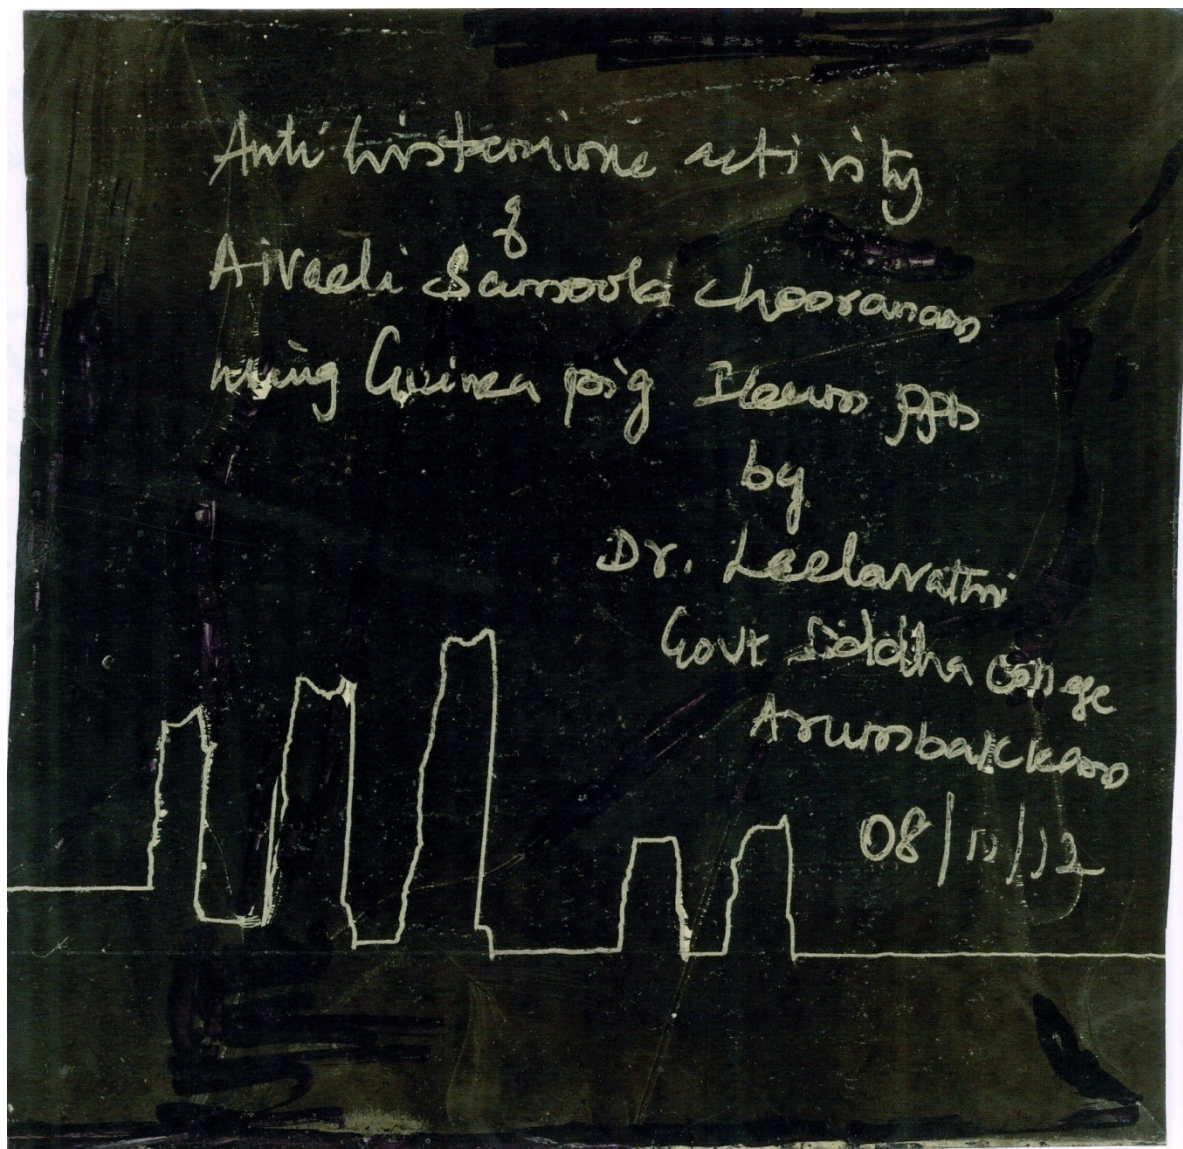 Anti histamine activity
of
Aivaeli Samoola Chooranam
using Guinea pig Ileum ppn
by
Dr. Leelavathi
Govt Siddha College
Arumbakkam
08/12/12